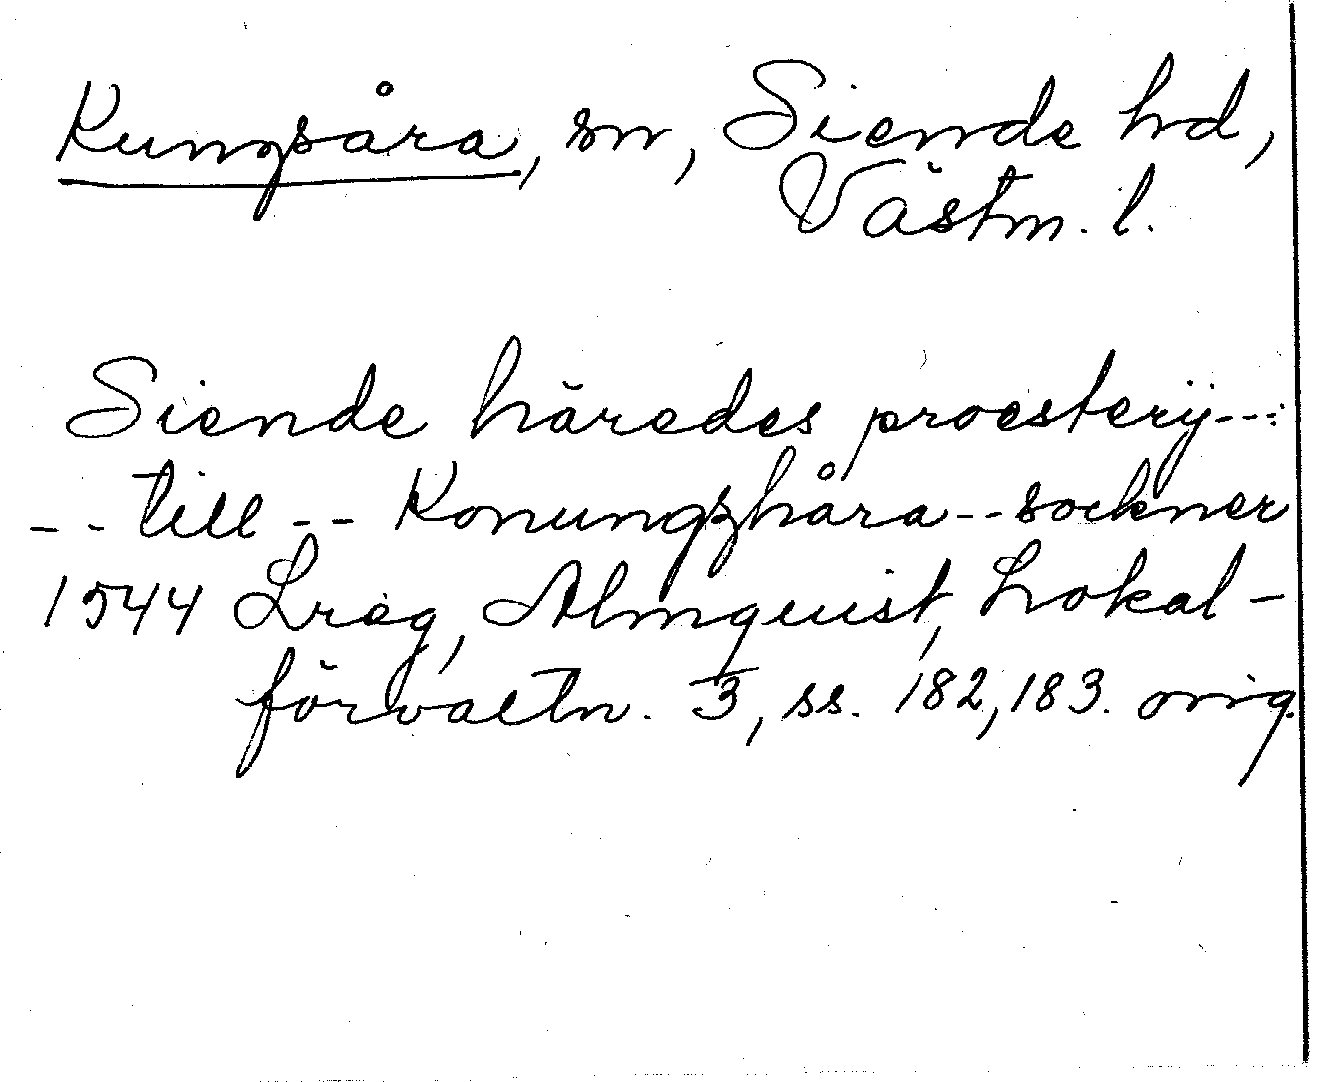 Kungsåra, sn, Siende hd,
Västm. l.
Siende häredes proesterij---
-- till -- Konungzhåra -- sockner
1544 Lreg, Almquist, Lokal-
förvaltn. 3, ss. 182, 183. orig.